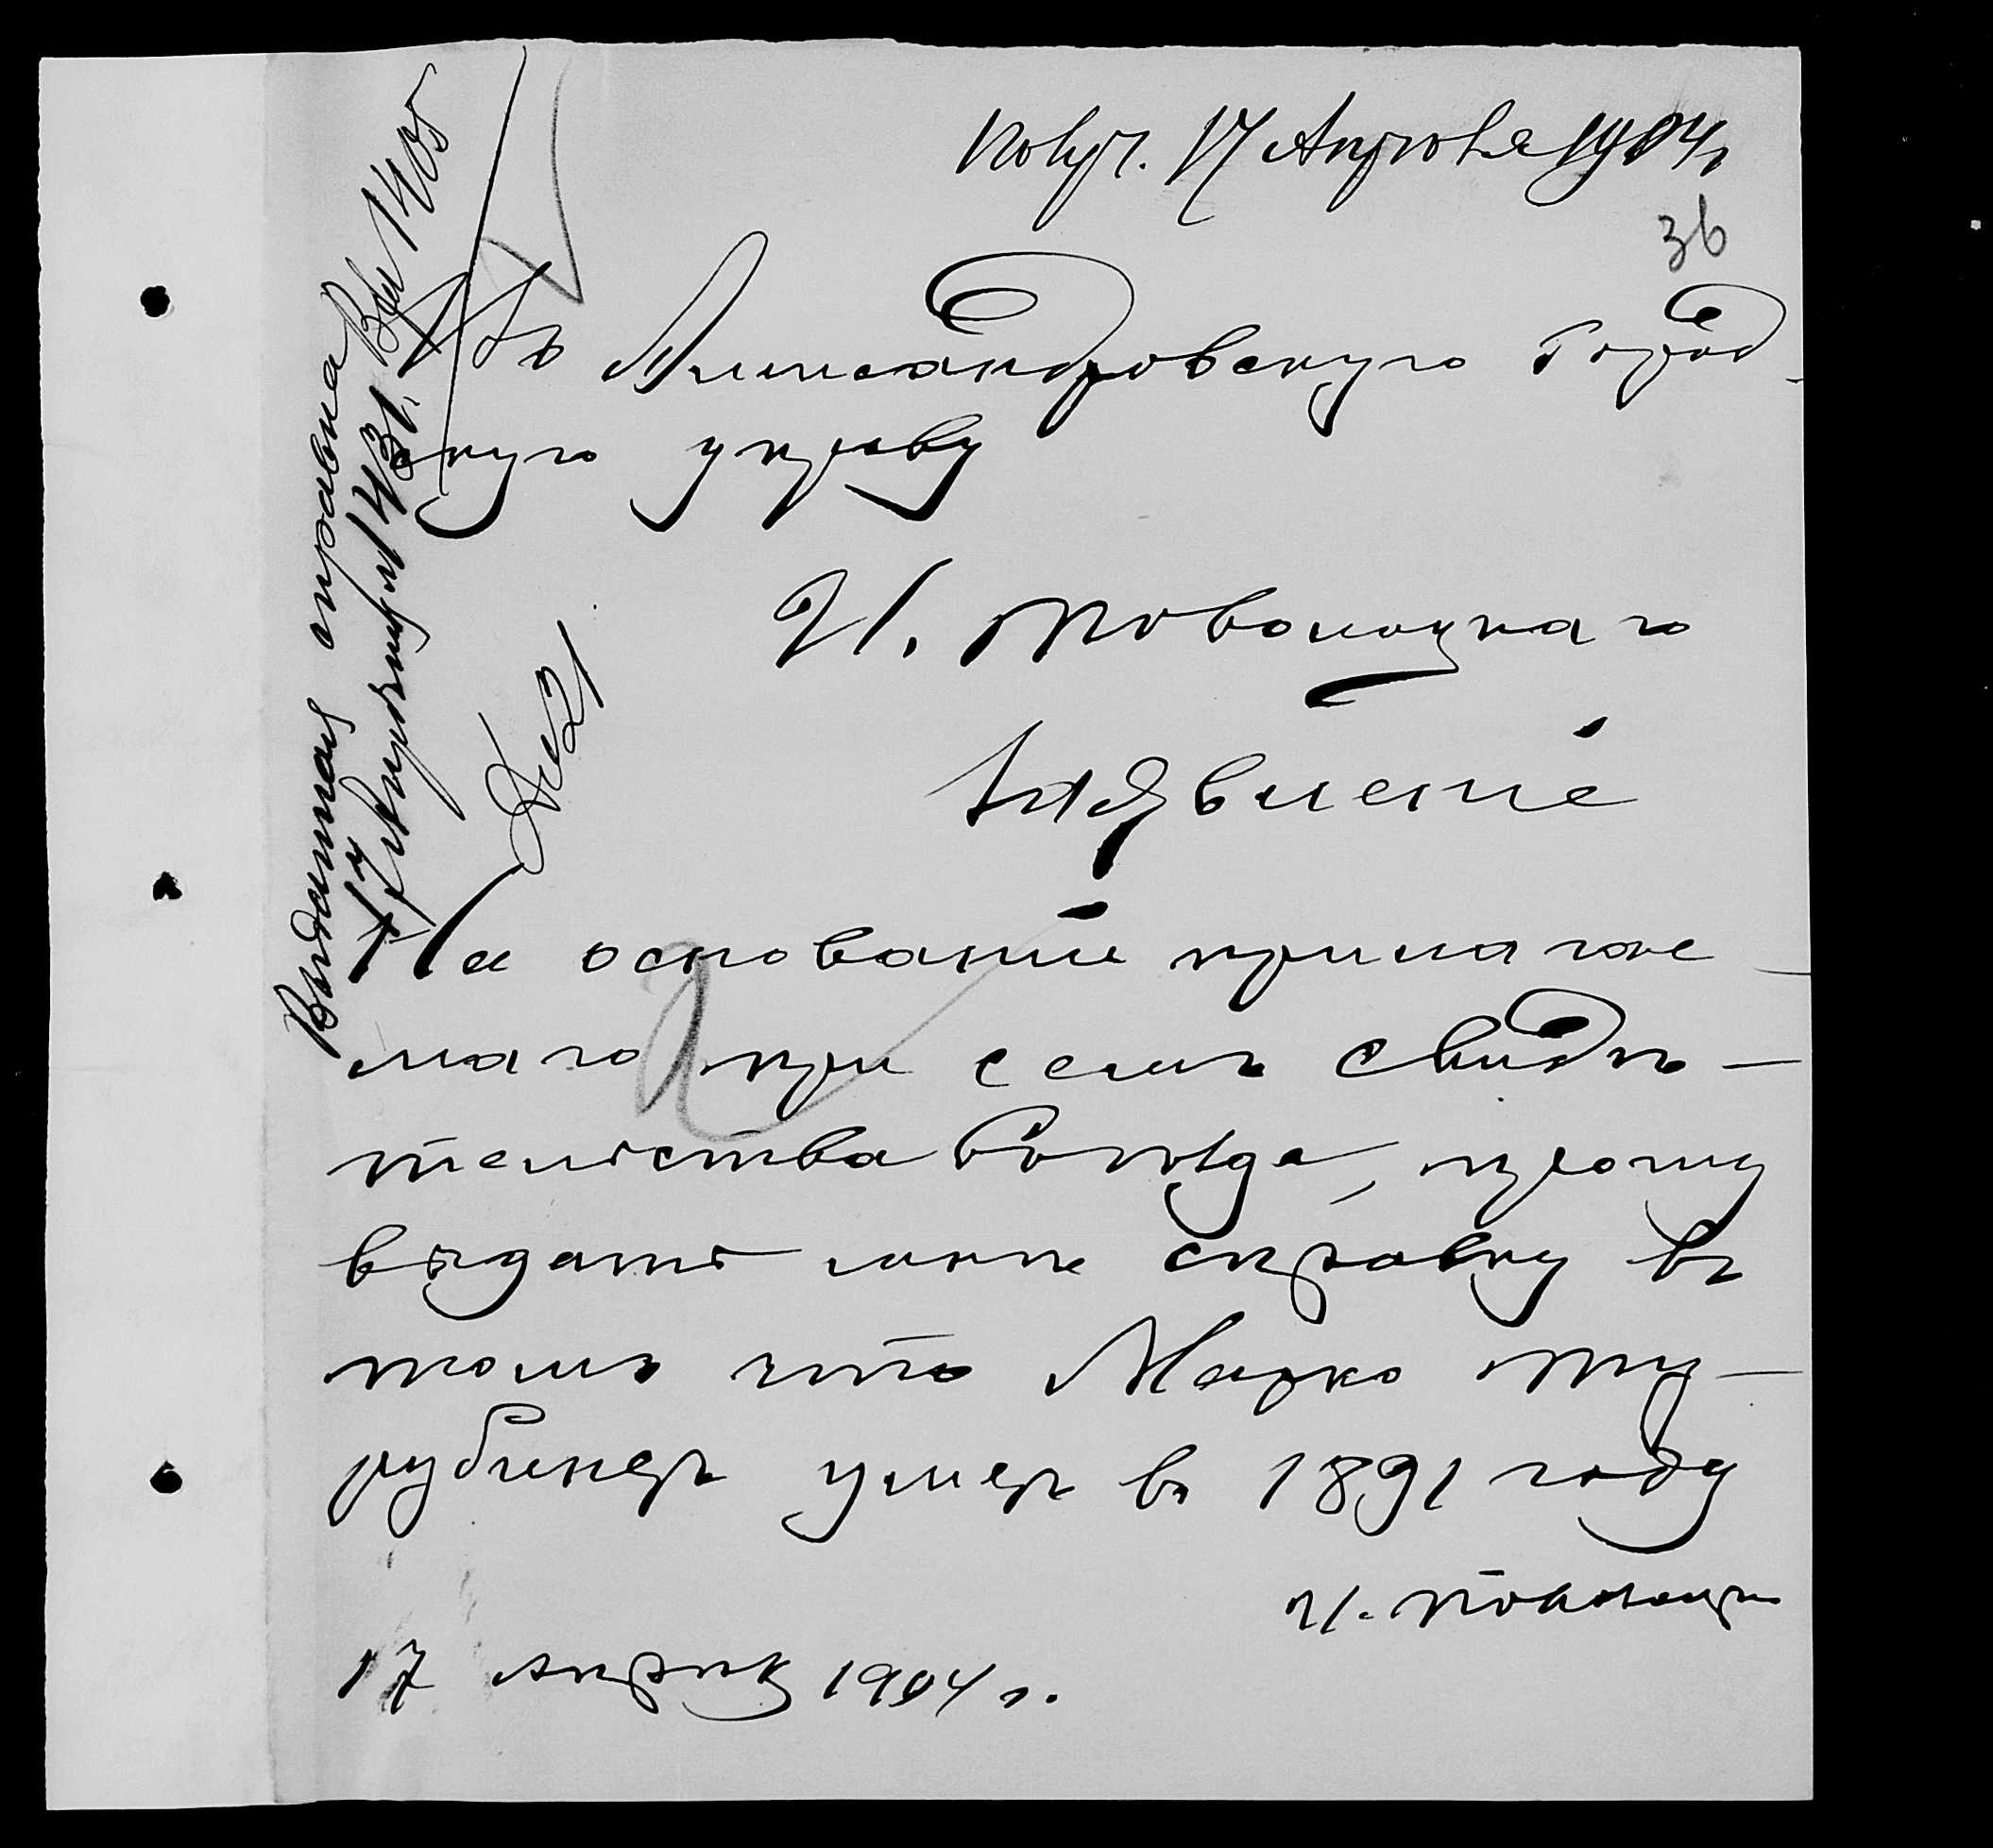 Получ. 17 Апреля 1904 г.
36
Въ Александровскую Город-
скую управу
И. Поволоцкаго
Заявленіе
На основаніи прилагае-
маго при семъ свидѣ-
тельства, прошу
выдать мнѣ справку въ
томъ что Марко
умеръ въ 1891 году
И. Поволоцкій
17 Апрѣля 1904 г.
Выдана справка
17 Апрѣля 1431.
Вх 1405